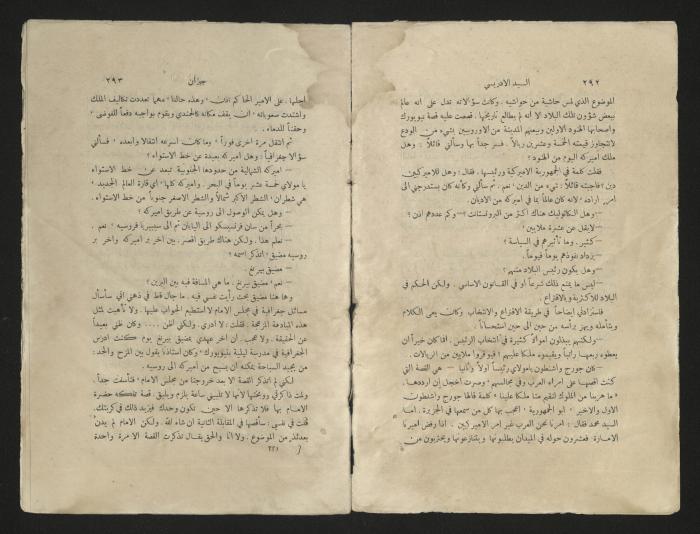 ٢٩٢ السيد الادريسي
الموضوع الذي لمس حاشية من حواشيه . وكانت سؤالاته تدل على انه عالم
ببعض شؤون تلك البلاد الا انه لم يطالع تاريخها . فقصصت عليه قصة نيويورك
واصحابها الهنود الاولين وبيعهم المدينة من الاوروبيين بشيء من الودع
لا تتجاوز قيمته الخمسة وعشرين ريالاً . فسر جداً بها وسألني قائلاً : وهل
ملك اميركه اليوم من الهنود ؟
فقلت كلمة في الجمهورية الاميركية ورئيسها . فقال : وهل للاميركيين
دين ؟ فاجبته قائلاً : شيء من الدين ، نعم . ثم سألني وكأنه كان يستدرجني الى
امر اراده ، لانه كان عالماً بما في اميركه من الاديان .
– وهل الكاثوليك هناك اكثر من البروتستانت ؟ – وكم عددهم اذن ؟
– لا يقل عن عشرة ملايين .
– كثير . وما تأثيرهم في السياسة ؟
– يزداد نفوذهم يوماً فيوماً .
– وهل يكون رئيس البلاد منهم ؟
– ليس ما يمنع ذلك شرعاً او في القانون الاساسي . ولكن الحكم في
البلاد للاكثرية وبالاقتراع .
فاستزادني ايضاحاً في طريقة الاقتراع والانتخاب وكان يعي الكلام
ويتأمله ويهز برأسه من حين الى حين استحساناً .
– ولكنهم يبذلون اموالاً كثيرة في انتخاب الرئيس . أفما كان خيراً ان
يعطوه ربعها راتباً ويقيموه ملكا عليهم ؛ فيوفروا ملايين من الريالات .
– كان جورج واشنطون يا مولاي رئيساً اولاً وثانياً — هي القصة التي
كنت اقصها على امراء العرب وفي مجالسهم ، وصرت اخجل ان ارددها .
« ما هربنا من الملوك لنقيم منا ملكا علينا » كلمة قالها جورج واشنطون
الاول والاخير ، ابو الجمهورية ، اعجب بها كل من سمعها في الجزيرة . اما
السيد محمد فقال : امرنا نحن العرب غير امر الاميركيين . اذا رفض اميرنا
الامارة فعشرون حوله في الميدان يطلبونها ويتنازعونها ويحتربون من
جيزان ٢٩٣
اجلها . على الامير الحاكم اذن ، وهذه حالنا ، مهما تعددت تكاليف الملك
واشتدت صعوباته ، ان يقف مكانه كالجندي ويقوم بواجبه دفعاً للفوضى ،
وحقناً للدماء .
ثم انتقل مرة اخرى فوراً ، وما كان اسرعه انتقالا وابعده ، فسألني
سؤالا جغرافياً : وهل اميركه بعيدة عن خط الاستواء ؟
– اميركه الشمالية من حدودها الجنوبية تبعد عن خط الاستواء
يا مولاي خمسة عشر يوماً في البحر . واميركه كلها ، اي قارة العالم الجديد ،
هي شطران ، الشطر الاكبر شمالاً والشطر الاصغر جنوباً من خط الاستواء .
– وهل يمكن الوصول الى روسية عن طريق اميركه ؟
– بحراً من سان فرنسيسكو الى اليابان ثم الى سيبيريا فروسيه ، نعم .
– نعلم هذا . ولكن هناك طريق اقصر . بين آخر بر اميركه وآخر بر
روسيه مضيق ، اتذكر اسمه ؟
– مضيق بيرنغ .
– نعم ، مضيق بيرنغ . ما هي المسافة فيه بين البرين ؟
وها هنا مضيق بحث رأيت نفسي فيه . ما جال قط في ذهني اني سأسأل
مسائل جغرافية في مجلس الامام لا استطيع الجواب عليها . ولا تأهبت لمثل
هذه المباحث المزعجة . فقلت : لا ادري . ولكني اظن ... وكان ظني بعيداً
عن الحقيقة . ولا عجب . ان آخر عهدي بمضيق بيرنغ يوم كنت ادرس
الجغرافية في مدرسة ليلية بنيويورك ، وكان استاذنا يقول بين المزح والجد :
من يجيد السباحة يمكنه ان يسبح من اميركه الى روسيه .
لكني لم اتذكر القصة الا بعد خروجنا من مجلس الامام ، فتأسفت جداً .
ولمت ذاكرتي ووبختها لانها لا تلبيني ساعة يلزم ويليق . قصة تفكه حضرة
الامام بها فلا تذكرها الا حين تكون وحدك فيزيد ذلك في كربتك .
قلت في نفسي : سأقصها في المقابلة الثانية ان شاء الله . ولكن الامام لم يدنُ
بعدئذ من الموضوع . ولا انا والحق يقال تذكرت القصة الا مرة واحدة